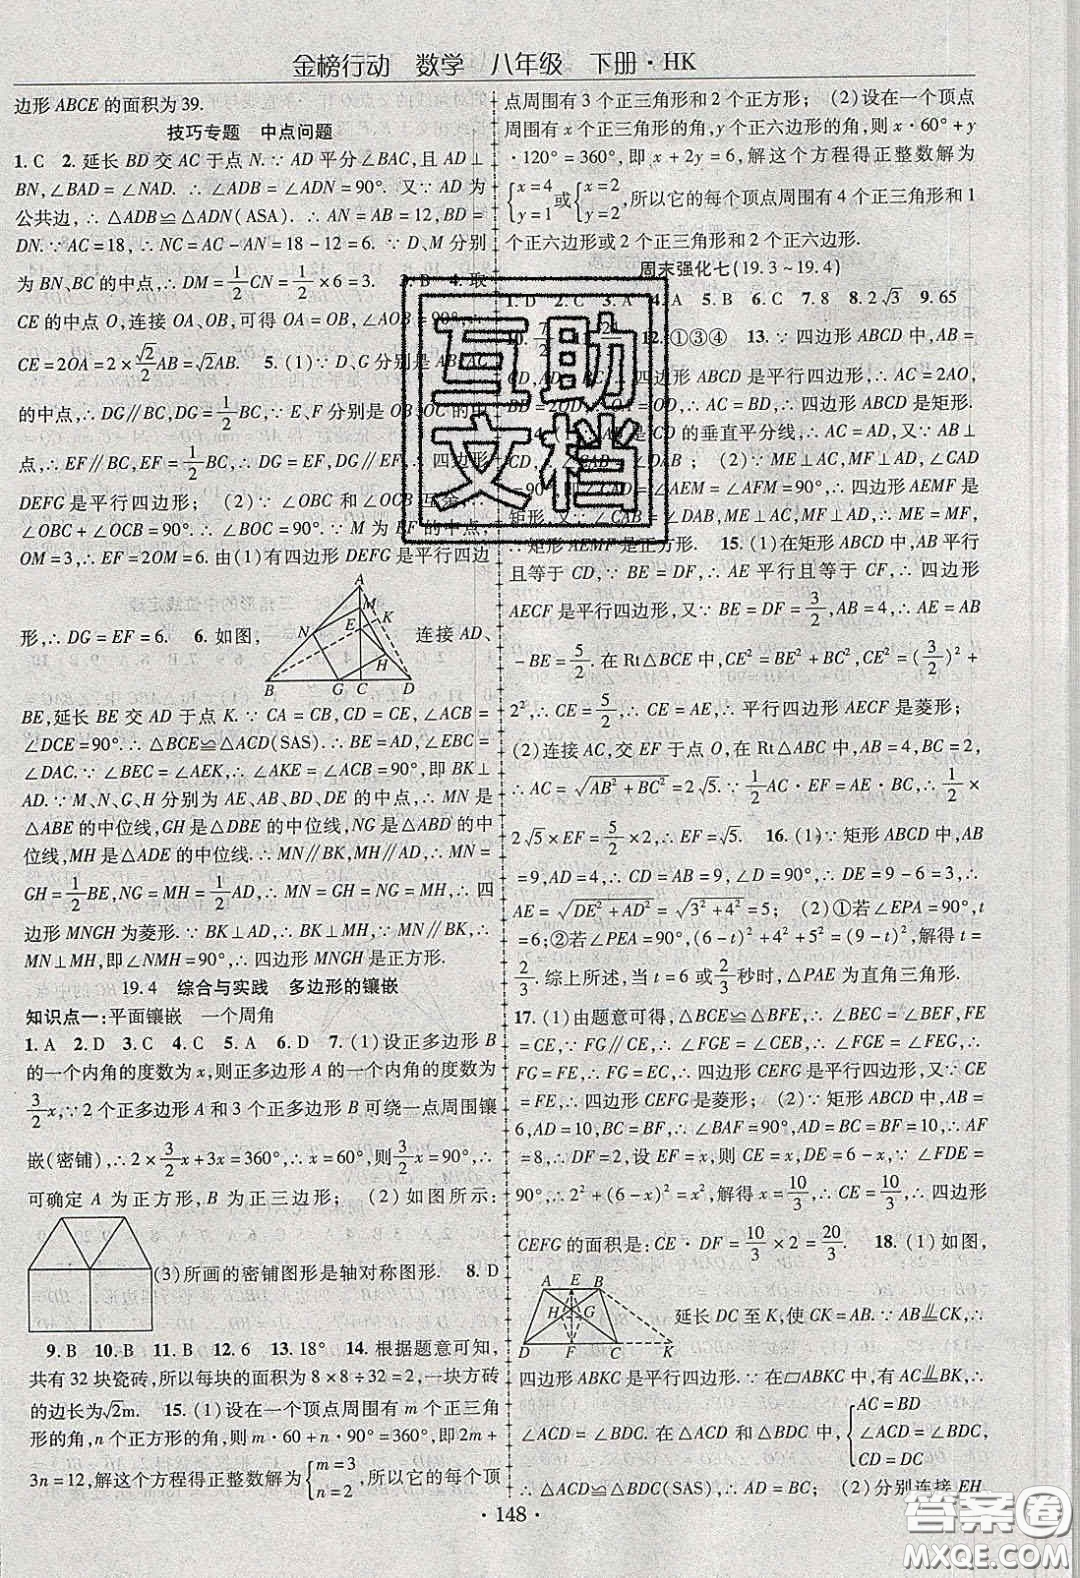 金榜行动 数学 八年级 下册·HK
边形ABCE的面积为39.
技巧专题 中点问题
1. C 2. 延长BD交AC于点N.∵AD平分∠BAC,且AD⊥
BN,∠BAD=∠NAD. ∴∠ADB=∠ADN=90°. 又∵AD为
公共边,∴△ADB≌△ADN(ASA).∴AN=AB=12,BD=
DN.∵AC=18,∴NC=AC-AN=18-12=6.∵D、M分别
为BN、BC的中点,∴DM=1/2CN=1/2×6=3. 3. B 4. 取
CE的中点O,连接OA、OB,可得OA=OB,
CE=2OA=2×√2/2AB=√2AB. 5. (1)∵D、G分别是AB、AC
的中点,∴DG∥BC,DG=1/2BC.∵E、F分别是OB、OC的中
点,∴EF∥BC,EF=1/2BC.∴DG=EF,DG∥EF.∴四边形
DEFG是平行四边形; (2)∵∠OBC和∠OCB互余,
∠OBC+∠OCB=90°.∴∠BOC=90°.∵M为EF的中点,
OM=3,∴EF=2OM=6. 由(1)有四边形DEFG是平行四边
形,∴DG=EF=6. 6. 如图, 连接AD、
A M K E N H B G C D
BE,延长BE交AD于点K.∵CA=CB,CD=CE,∠ACB=
∠DCE=90°.∴△BCE≌△ACD(SAS).∴BE=AD,∠EBC=
∠DAC.∵∠BEC=∠AEK,∴∠AKE=∠ACB=90°,即BK⊥
AD.∵M、N、G、H分别为AE、AB、BD、DE的中点,∴MN是
△ABE的中位线,GH是△DBE的中位线,NG是△ABD的中
位线,MH是△ADE的中位线.∴MN∥BK,MH∥AD,MN=
GH=1/2BE,NG=MH=1/2AD.∴MN=GH=NG=MH,∴四
边形MNGH为菱形.∵BK⊥AD,∴BK⊥MH.∵MN∥BK,∴
MN⊥MH,即∠NMH=90°,∴四边形MNGH是正方形.
19.4 综合与实践 多边形的镶嵌
知识点一:平面镶嵌 一个周角
1. A 2. D 3. C 4. C 5. A 6. D 7. (1)设正多边形B
的一个内角的度数为x,则正多边形A的一个内角的度数为
3/2x,∵2个正多边形A和3个正多边形B可绕一点周围镶
嵌(密铺),∴2×3/2x+3x=360°,∴x=60°,则3/2x=90°,∴
可确定A为正方形,B为正三边形; (2)如图所示:
(3)所画的密铺图形是轴对称图形. 8. D
9. B 10. B 11. B 12. 6 13. 18° 14. 根据题意可知,
共有32块瓷砖,所以每块的面积为8×8÷32=2,一块方砖
的边长为√2m. 15. (1)设在一个顶点周围有m个正三角
形的角,n个正方形的角,则m·60+n·90°=360°,即2m+
3n=12,解这个方程得正整数解为{m=3 n=2,所以它的每个顶
点周围有3个正三角形和2个正方形; (2)设在一个顶点
周围有x个正三角形的角,y个正六边形的角,则x·60°+y
·120°=360°,即x+2y=6,解这个方程得正整数解为
{x=4 y=1或{x=2 y=2,所以它的每个顶点周围有4个正三角形和1
个正六边形或2个正三角形和2个正六边形.
周末强化七(19.3~19.4)
1. D 2. C 3. A 4. A 5. B 6. C 7. 8 8. 2√3 9. 65
12. ①③④ 13. ∵四边形ABCD中,AB=
CD,∴四边形ABCD是平行四边形,∴AC=2AO,
BD=2OD,∴AC=BD,∴四边形ABCD是矩形.
CD的垂直平分线,∴AC=AD,又∵AB⊥
(2)∵ME⊥AC,MF⊥AD,∴
=90°,∴∠AEM=∠AFM=90°,∴四边形AEMF是
矩形,又∵∠CAB=∠DAB,ME⊥AC,MF⊥AD,∴ME=MF,
∴矩形AEMF是正方形. 15. (1)在矩形ABCD中,AB平行
且等于CD,∵BE=DF,∴AE平行且等于CF,∴四边形
AECF是平行四边形,又∵BE=DF=3/2,AB=4,∴AE=AB
-BE=5/2. 在Rt△BCE中,CE²=BE²+BC²=(3/2)²+
2²,∴CE=5/2,∴CE=AE,∴平行四边形AECF是菱形;
(2)连接AC,交EF于点O,在Rt△ABC中,AB=4,BC=2,
∴AC=√(AB²+BC²)=2√5.∵1/2AC×EF=AE·BC,∴1/2×
2√5×EF=5/2×2,∴EF=√5. 16. (1)∵矩形ABCD中,AB
=9,AD=4,∴CD=AB=9,∴DE=9-6=3,∴
AE=√(DE²+AD²)=√(3²+4²)=5; (2)①若∠EPA=90°,t
=6;②若∠PEA=90°,(6-t)²+4²+5²=(9-t)²,解得t=
2/3. 综上所述,当t=6或2/3秒时,△PAE为直角三角形.
17. (1)由题意可得,△BCE≌△BFE,∴∠BEC=∠BEF,FE
=CE,∵FG∥CE,∴∠FGE=∠CEB,∴∠FGE=∠FEG,∴
FG=FE,∴FG=EC,∴四边形CEFG是平行四边形,又∵CE
=FE,∴四边形CEFG是菱形; (2)∵矩形ABCD中,AB=
6,AD=10,BC=BF,∴∠BAF=90°,AD=BC=BF=10,∴AF
=8,∴DF=2,设EF=x,则CE=x,DE=6-x,∵∠FDE=
90°,∴2²+(6-x)²=x²,解得x=10/3,∴CE=10/3,∴四边形
CEFG的面积是:CE·DF=10/3×2=20/3. 18. (1)如图,
A E B H G D F C K
延长DC至K,使CK=AB.∵AB⫫CK,∴
四边形ABKC是平行四边形.∵在▱ABKC中,有AC⫫BK,∴
∠ACD=∠BDC.∵在△ACD和△BDC中,{AC=BD ∠ACD=∠BDC, CD=DC
∴△ACD≌△BDC(SAS),∴AD=BC; (2)分别连接EH、
·148·
互助文档
答案圈
MXQE.COM